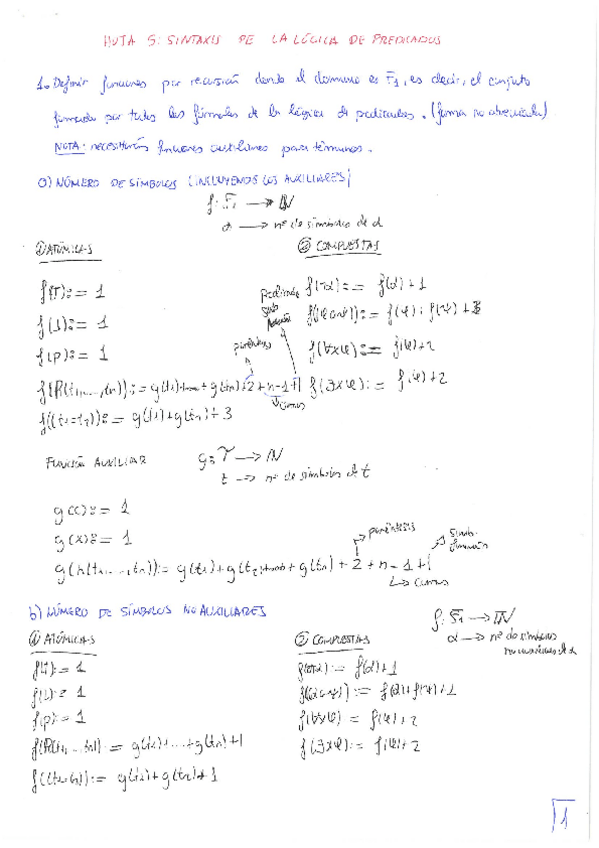 HOJA 5: SINTAXIS DE LA LÓGICA DE PREDICADOS
1. Definir funciones por recursión donde el dominio es F1, es decir, el conjunto
formado por todas las fórmulas de la lógica de predicados. (forma no abreviada)
NOTA: necesitarás funciones auxiliares para términos.
a) NÚMERO DE SÍMBOLOS (INCLUYENDO LOS AUXILIARES)
f: F1 → IN
α → nº de símbolos de α
① ATÓMICAS
② COMPUESTAS
f(⊤) := 1
f(⊥) := 1
f(p) := 1
f(R(t1,...,tn)) := g(t1)+...+g(tn)+2+n-1+1
paréntesis
símb.
comas
f((t1=t2)) := g(t1)+g(t2)+3
f(¬α) := f(α)+1
f(∀xφ) := f(φ)+2
f(∃xφ) := f(φ)+2
FUNCIÓN AUXILIAR g: T → IN
t → nº de símbolos de t
g(c) := 1
g(x) := 1
g(h(t1,...,tn)) := g(t1)+g(t2)+...+g(tn)+2+n-1+1
paréntesis
símb. función
comas
b) NÚMERO DE SÍMBOLOS NO AUXILIARES
f: F1 → IN
α → nº de símbolos
no auxiliares de α
① ATÓMICAS
② COMPUESTAS
f(⊤) := 1
f(⊥) := 1
f(p) := 1
f(R(t1,...,tn)) := g(t1)+...+g(tn)+1
f((t1=t2)) := g(t1)+g(t2)+1
f(¬α) := f(α)+1
f(∀xφ) := f(φ)+2
f(∃xφ) := f(φ)+2
1